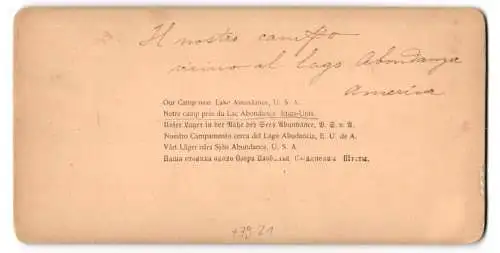 Il nostro campo
vicino al lago Abondanza
America
Our Camp near Lake Abundance, U. S. A.
Notre camp près du Lac Abondance. Etats-Unis.
Unser Lager in der Nähe des Sees Abundance, V. S. v. A.
Nuestro Campamento cerca del Lago Abudancia, E. U. de A.
Vårt Läger nära Sjön Abundance, U. S. A
Наша стоянка около Озера